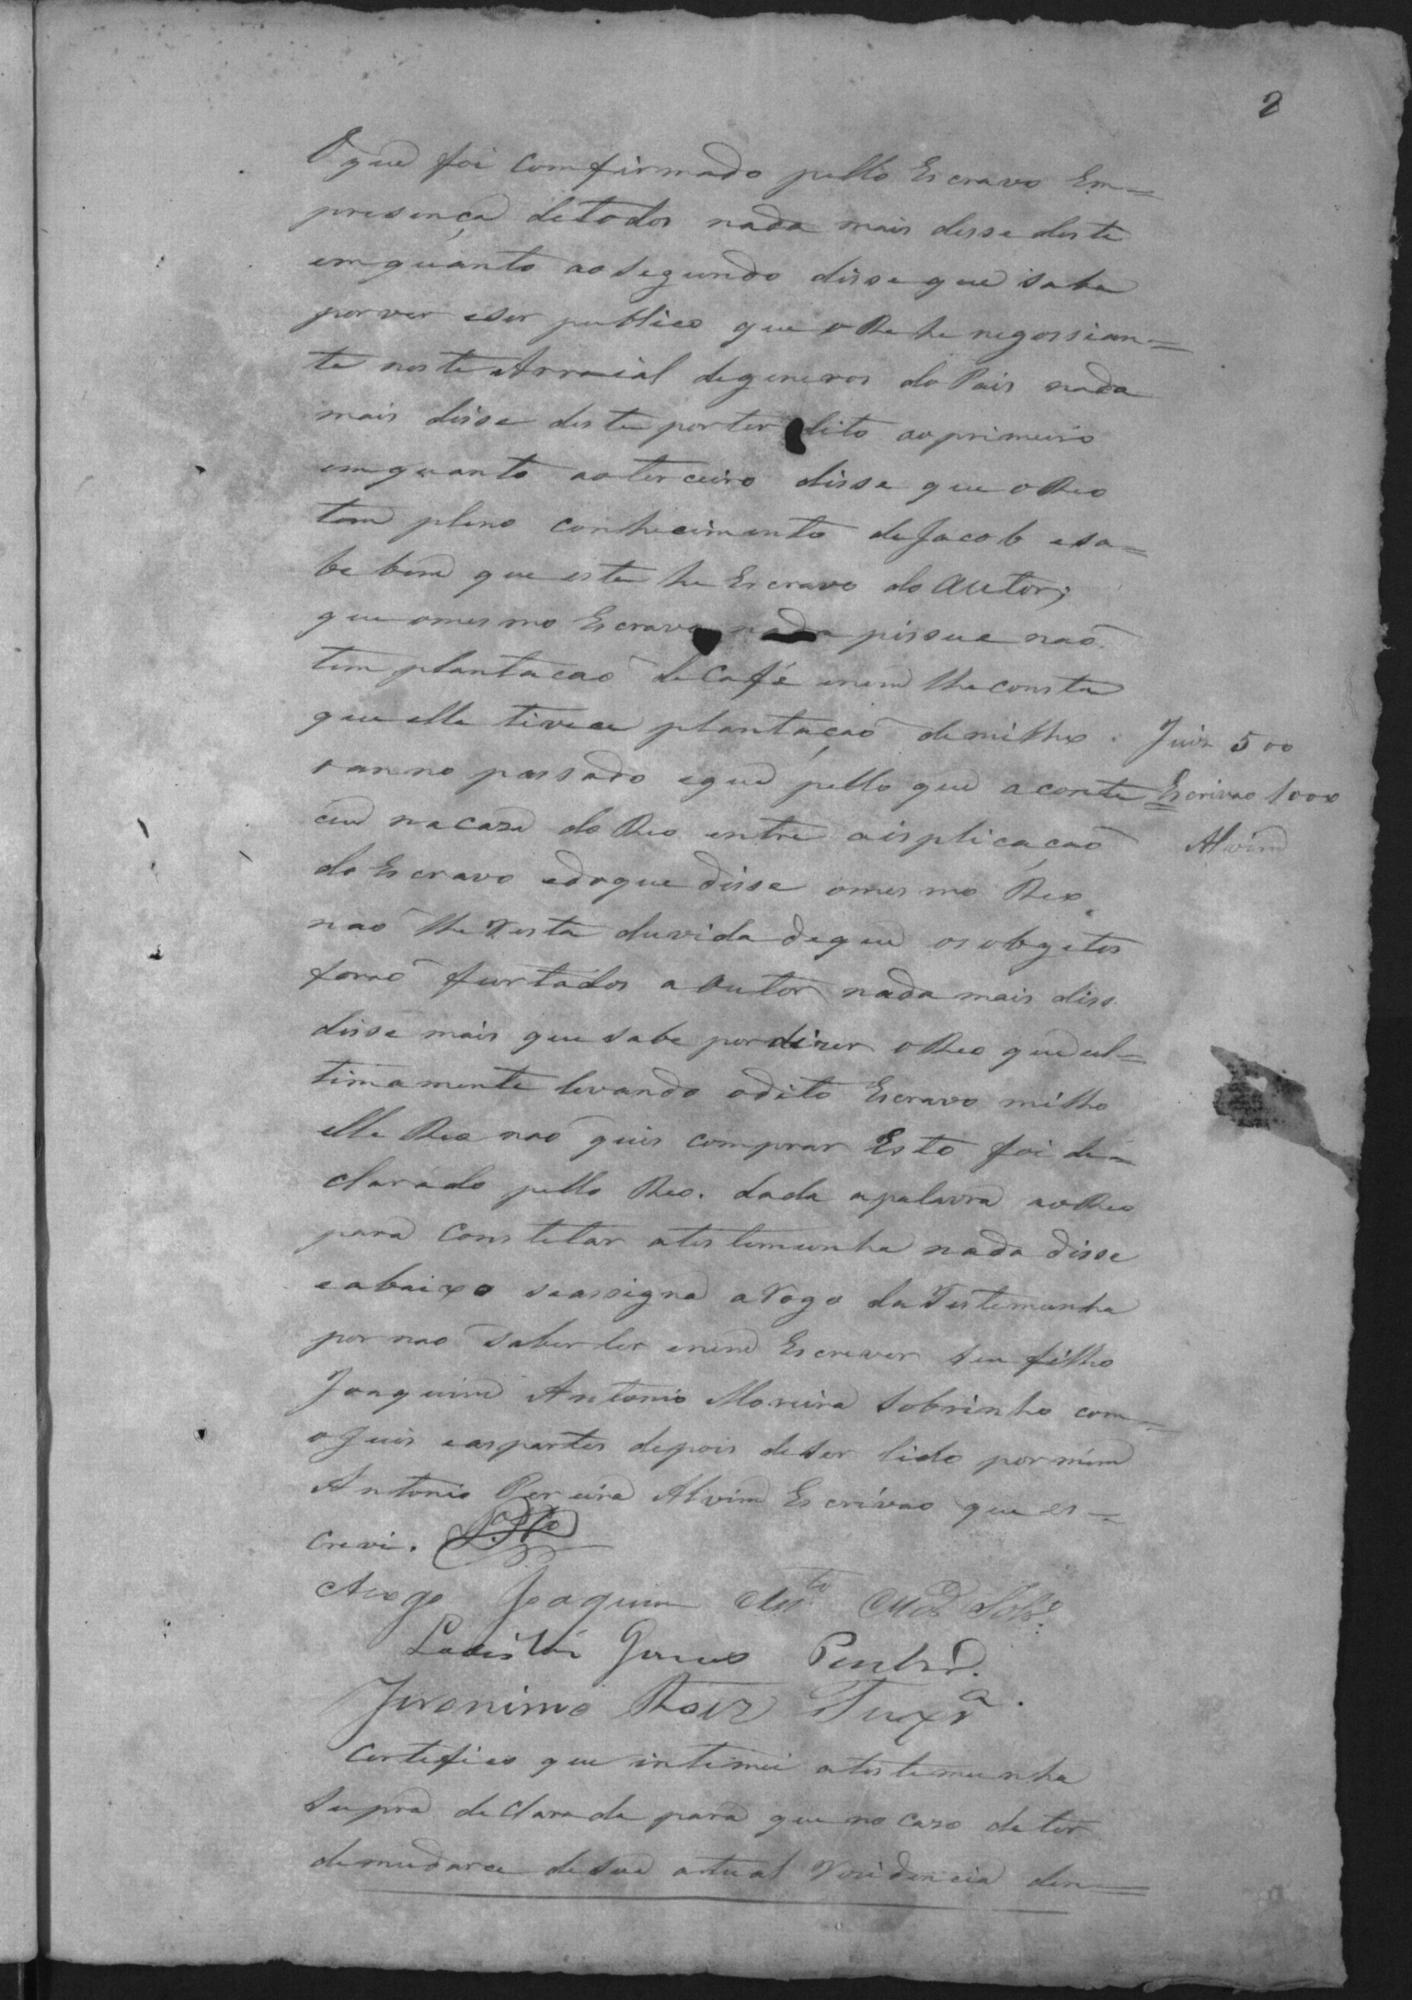 2
O que foi comfirmado pello Escravo Em=
presença detodos nada mais disse deste
emquanto aosegundo disse que sabe
por ver eser publico que o Re he negossian=
te neste Arraial degeneros do Pais nada
mais disse deste porter dito aoprimeiro
emquanto aoterceiro disse que o Reo
tem pleno conhecimento de Jacob esa=
be bem que este he Escravo do Autor;
que omesmo Escravo nada pissue naõ
tem plantacaõ de Café enem lhe consta
que elle tivece plantaçaõ demilho
oanno passado eque pello que aconte
ceu nacaza do Reo entre aisplicacaõ
do Escravo edoque disse omesmo Reo
naõ lhe resta duvida deque os obgetos
foraõ furtados a Autor nada mais diss
disse mais que sabe pordizer o Reo que ul=
timamente levando odito Escravo milho
elle Reo naõ quis comprar Esto foi de=
clarado pello Reo. dada apalavra aoReo
para constetar atestemunha nada disse
eabaixo seassigna a rogo da Testemunha
por naõ saber ler enem Escrever seu filho
Joaquim Antonio Moreira Sobrinho com=
o Juis easpartes depois deser lido pormim
Antonio Pereira Alvim Escrivaõ que es=
crevi.
Juiz 500
Escrivao 1000
Alvim
Arogo Joaquim Ant.to Mor.a Sobr.o
Jeronimo Roiz Teixr.a
Certefico que intimei atestemunha
supra declarada para que no cazo de ter
demudarce desua actual residencia den=